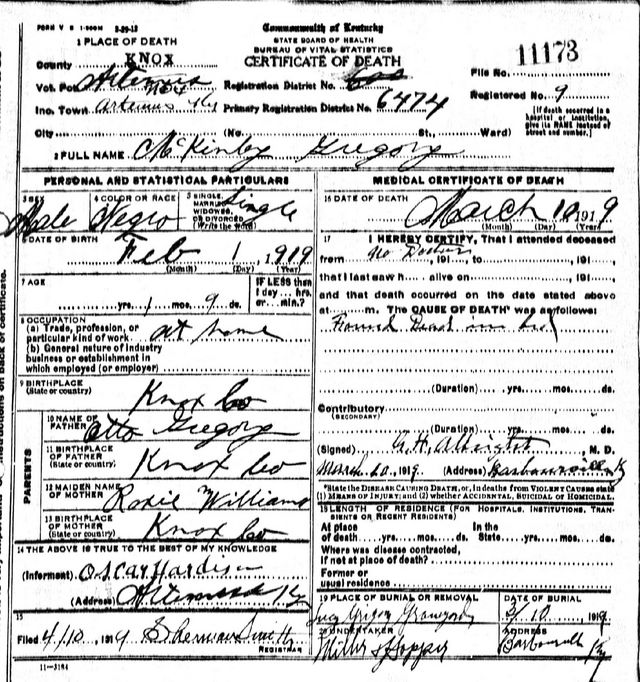 FORM V S 1-500M 3-29-13
Commonwealth of Kentucky
STATE BOARD OF HEALTH
BUREAU OF VITAL STATISTICS
CERTIFICATE OF DEATH
1 PLACE OF DEATH
County KNOX
File No. 11173
Vot. Pct. Artemus Registration District No.
Registered No. 9
Inc. Town Artemus Ky Primary Registration District No. 6474
[If death occurred in a hospital or institution, give its NAME instead of street and number.]
City (No. St., Ward)
2 FULL NAME McKinby Gregory
PERSONAL AND STATISTICAL PARTICULARS
3 SEX Male
4 COLOR OR RACE Negro
5 SINGLE, MARRIED, WIDOWED, OR DIVORCED (Write the word) Single
6 DATE OF BIRTH Feb 1, 1919
(Month) (Day) (Year)
7 AGE
yrs. 1 mos. 9 ds.
IF LESS than 1 day... hrs. or... min.?
8 OCCUPATION
(a) Trade, profession, or particular kind of work at home
(b) General nature of industry
business or establishment in
which employed (or employer)
9 BIRTHPLACE
(State or country) Knox Co
PARENTS
10 NAME OF FATHER Otto Gregory
11 BIRTHPLACE OF FATHER
(State or country) Knox Co
12 MAIDEN NAME OF MOTHER Roxie Williams
13 BIRTHPLACE OF MOTHER
(State or country) Knox Co
14 THE ABOVE IS TRUE TO THE BEST OF MY KNOWLEDGE
(Informant) Oscar Hardison
(Address) Artemus Ky
15
Filed 4/10, 1919 Sherman Smith
REGISTRAR
11-3184
MEDICAL CERTIFICATE OF DEATH
16 DATE OF DEATH March 10 1919
(Month) (Day) (Year)
17 I HEREBY CERTIFY, That I attended deceased
from No Doctor, 191 , to , 191 ,
that I last saw h alive on , 191 ,
and that death occurred on the date stated above
at m. The CAUSE OF DEATH* was as follows:
Found Dead in bed
(Duration) yrs. mos. ds.
Contributory
(SECONDARY)
(Duration) yrs. mos. ds.
(Signed) G. H. Albright, M. D.
March 20, 1919. (Address) Barbourville Ky
*State the DISEASE CAUSING DEATH, or, in deaths from VIOLENT CAUSES state
(1) MEANS OF INJURY; and (2) whether ACCIDENTAL, SUICIDAL or HOMICIDAL.
18 LENGTH OF RESIDENCE (FOR HOSPITALS, INSTITUTIONS, TRANSIENTS OR RECENT RESIDENTS)
At place of death yrs. mos. ds. In the State yrs. mos. ds.
Where was disease contracted,
if not at place of death?
Former or
usual residence
19 PLACE OF BURIAL OR REMOVAL
Graveyard
DATE OF BURIAL
3/10, 1919
20 UNDERTAKER
Miller & Hopper
ADDRESS
Barbourville Ky